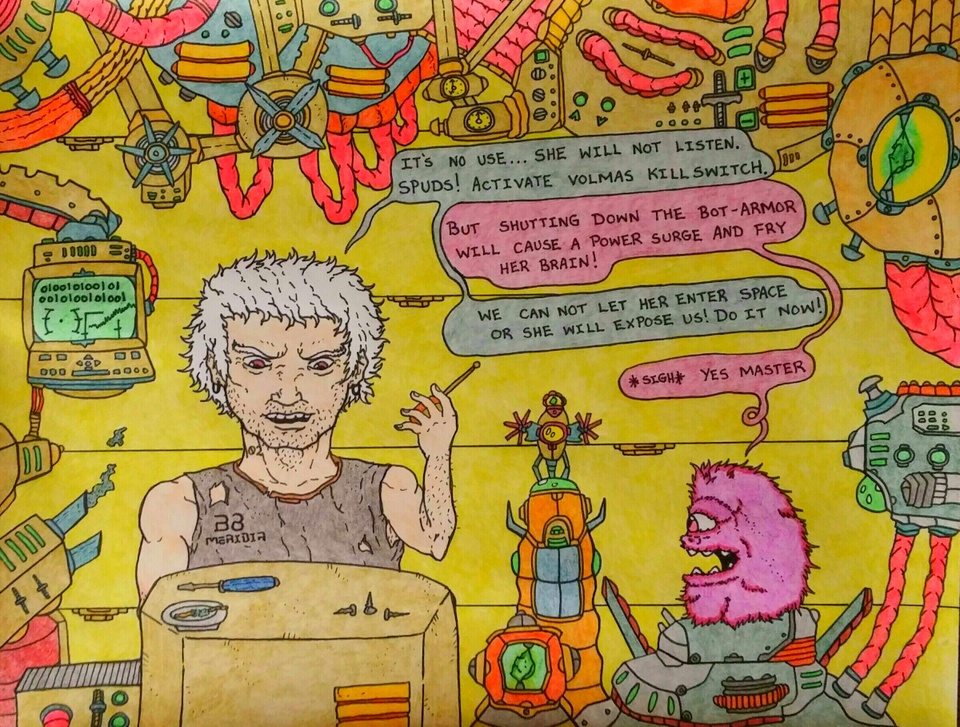 IT'S NO USE... SHE WILL NOT LISTEN.
SPUDS! ACTIVATE VOLMAS KILLSWITCH.
BUT SHUTTING DOWN THE BOT-ARMOR
WILL CAUSE A POWER SURGE AND FRY
HER BRAIN!
WE CAN NOT LET HER ENTER SPACE
OR SHE WILL EXPOSE US! DO IT NOW!
*SIGH* YES MASTER
010010100101
0010100101001
38
MERIDIA